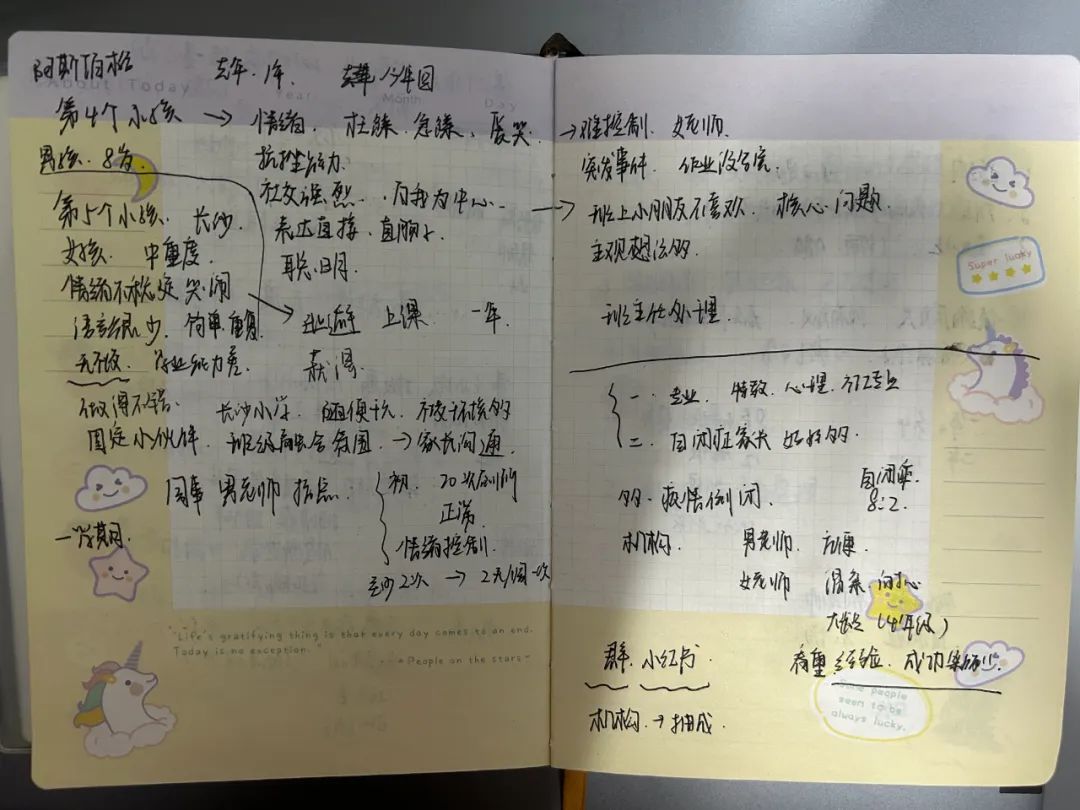 阿斯伯格 去年.1年. 去年、今年图
About Today
Year Month Day
第4个小孩 → 情绪. 狂躁. 急躁、爱哭.
男孩. 8岁. 抗挫能力
社交强烈. 自我为中心
第5个小孩. 长沙 表达直接、直
女孩. 中重度. 聪明
情绪不稳定 哭闹
上课 一年.
语言很少. 简单重复
学业能力差. 获得.
做得不错. 长沙小学. 不被
固定小伙伴. 班级融合氛围 → 家长沟通
同事 男老师
初. 20次
正常.
一学期 情绪控制.
至少2次 → 2天/周一次
"Life's gratifying thing is that every day comes to an end.
Today is no exception."
People on the stars
→ 难控制. 女老师.
突发事件 作业没写完.
→ 班上小朋友不喜欢. 核心问题
主观想法多.
班主任处理.
一. 专业. 特教. 心理.
二. 自闭症家长 多.
自闭
8:2.
机构. 男老师.
女老师 温柔.
群. 小红书. 希望 经验. 成功案例
机构. → 抽成.
Super lucky
Some people
seem to be
always lucky.